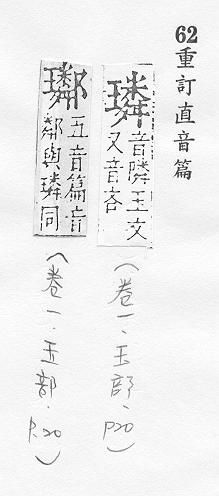 62重訂直音篇
璘
音隣玉文
又音吝
(卷一、玉部、P20)
五音篇音
鄰與璘同
(卷一、玉部、P.20)